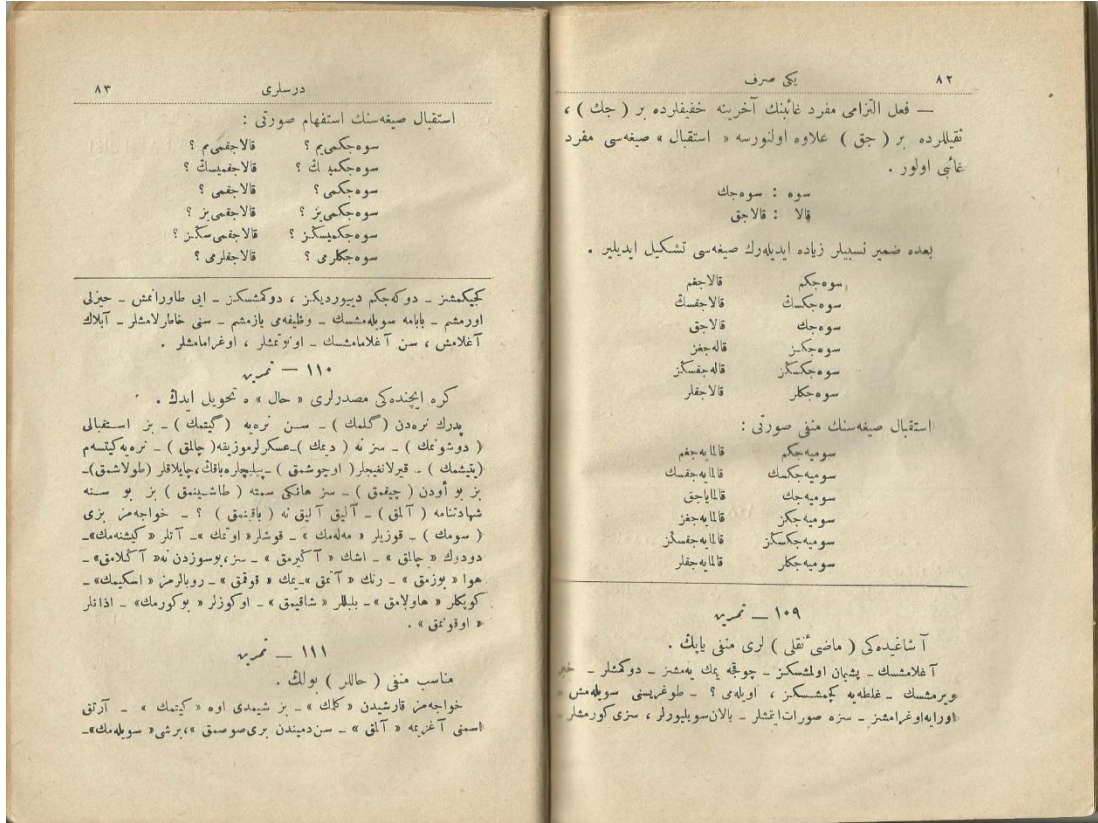 ٨٢ يكى صرف
— فعل التزامى مفرد غائبنك آخرينه خفيفلرده بر ( جك ) ،
ثقيللرده بر ( جق ) علاوه اولنورسه « استقبال » صيغه‌سى مفرد
غائبى اولور .
سوه : سوه‌جك
قالا : قالاجق
بعده ضمير نسبيلر زياده ايديله‌رك صيغه‌سى تشكيل ايديلير .
سوه‌جكم قالاجغم
سوه‌جكسڭ قالاجقسڭ
سوه‌جك قالاجق
سوه‌جكز قاله‌جغز
سوه‌جكسڭز قاله‌جقسڭز
سوه‌جكلر قالاجقلر
استقبال صيغه‌سنك منفى صورتى :
سوميه‌جكم قالمايه‌جغم
سوميه‌جكسك قالمايه‌جقسك
سوميه‌جك قالماياجق
سوميه‌جكز قالمايه‌جغز
سوميه‌جكسڭز قالمايه‌جقسڭز
سوميه‌جكلر قالمايه‌جقلر
١٠٩ — تمرين
آشاغيده‌كى ( ماضئ نقلى ) لرى منفى ياپڭ .
آغلامشسك – پشمان اولمشسكز – چوقجه يمك يه‌مشز – دوكمشلر – خبر
ويرمشسك – غلطه‌يه كچمشسكز ، اويله‌مى ؟ – طوغريسنى سويله‌مش –
اورايه‌اوغرامشز – سزه صورات‌ايتمشلر – يالان‌سويليورلر ، سزى كورمشلر –
درسلرى ٨٣
استقبال صيغه‌سنك استفهام صورتى :
سوه‌جكمى‌يم ؟ قالاجقمى‌يم ؟
سوه‌جكميسڭ ؟ قالاجقميسڭ ؟
سوه‌جكمى ؟ قالاجقمى ؟
سوه‌جكمى‌يز ؟ قالاجقمى‌يز ؟
سوه‌جكميسڭز ؟ قالاجقمى‌سڭز ؟
سوه‌جكلرمى ؟ قالاجقلرمى ؟
كجيكمشز – دوكه‌جكم دييورديكز ، دوكمشسكز – ايى طاورانمش – حيزلى
اورمشم – بابامه سويله‌مشسك – وظيفه‌مى يازمشم – سنى خاطرلامشلر – آبلاك
آغلامش ، سن آغلامامشسك – اونوتمشلر ، اوغرامامشلر .
١١٠ — تمرين
كره ايچنده‌كى مصدرلرى « حال » ه تحويل ايدڭ .
پدرك نره‌دن ( گلمك ) – سن نره‌يه ( گيتمك ) – بز استقبالى
( دوشونمك ) – سز نه ( ديمك ) – عسكرلرموزيقه ( چالمق ) – نره‌يه‌كيتسه‌م
( يتيشمك ) – قيرلانغيجلر ( اوچوشمق ) – پيليجلره‌باقڭ ، چايلاقلر ( طولاشمق ) –
بز بو أودن ( چيقمق ) – سز هانكى سمته ( طاشينمق ) بز بو سنه
شهادتنامه ( آلمق ) – آليق آليق نه ( باقينمق ) ؟ – خواجه‌مز بزى
( سومك ) – قوزيلر « مه‌له‌مك » – قوشلر « اوتمك » – آتلر « كيشنه‌مك » –
دودوك « چالمق » – اشك « آكيرمق » – سز ، بوسوزدن نه « آكلامق » –
هوا « بوزمق » – رنك « آتمق » – يمك « قوقمق » – روبالرمز « اسكيمك » –
كوپكلر « هاولامق » – بلبللر « شاقيمق » – اوكوزلر « بوكورمك » – اذانلر
« اوقونمق » .
١١١ — تمرين
مناسب منفى ( حاللر ) بولڭ .
خواجه‌مز قارشيدن « كلمك » – بز شيمدى اوه « كيتمك » – آرتق
اسمنى آغزيمه « آلمق » – سن‌دميندن برى‌صوصمق » ، برشى « سويله‌مك » –